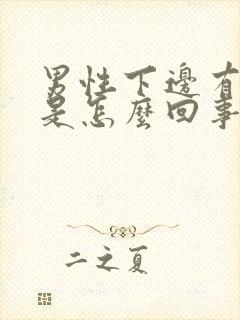 男性下邊有
是怎麼回事
二之夏